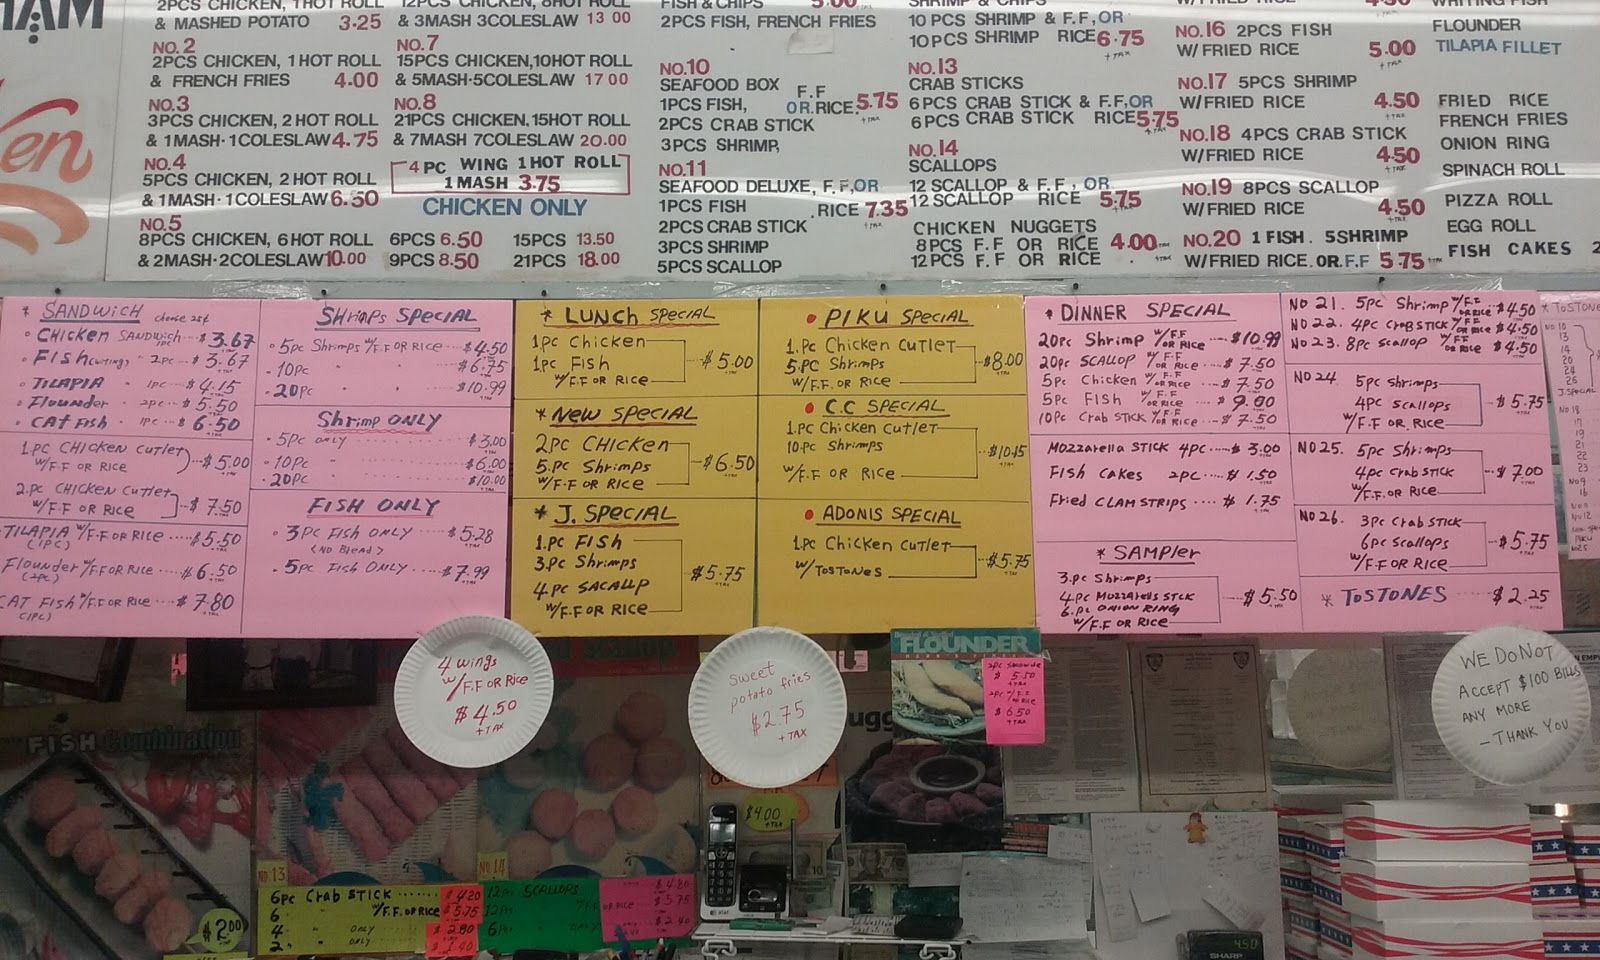 HAM
en
2PCS CHICKEN, 1 HOT ROLL
& MASHED POTATO 3.25
NO. 2
2PCS CHICKEN, 1 HOT ROLL
& FRENCH FRIES 4.00
NO. 3
3PCS CHICKEN, 2 HOT ROLL
& 1 MASH · 1 COLESLAW 4.75
NO. 4
5PCS CHICKEN, 2 HOT ROLL
& 1 MASH · 1 COLESLAW 6.50
NO. 5
8PCS CHICKEN, 6 HOT ROLL
& 2 MASH · 2 COLESLAW 10.00
12PCS CHICKEN, 8 HOT ROLL
& 3 MASH 3 COLESLAW 13 00
NO. 7
15PCS CHICKEN, 10 HOT ROLL
& 5 MASH · 5 COLESLAW 17 00
NO. 8
21PCS CHICKEN, 15 HOT ROLL
& 7 MASH 7 COLESLAW 20.00
4 PC WING 1 HOT ROLL
1 MASH 3.75
CHICKEN ONLY
6PCS 6.50 15PCS 13.50
9PCS 8.50 21PCS 18.00
FISH & CHIPS 5.00
2PCS FISH, FRENCH FRIES
NO. 10
SEAFOOD BOX F.F
1PCS FISH, OR. RICE. 5.75 +TAX
2PCS CRAB STICK
3PCS SHRIMP,
NO. 11
SEAFOOD DELUXE, F.F, OR
1PCS FISH . RICE 7.35 +TAX
2PCS CRAB STICK
3PCS SHRIMP
5PCS SCALLOP
SHRIMP & CHIPS
10 PCS SHRIMP & F.F, OR
10 PCS SHRIMP RICE 6.75 +TAX
NO. 13
CRAB STICKS
6 PCS CRAB STICK & F.F, OR
6 PCS CRAB STICK RICE 5.75 +TAX
NO. 14
SCALLOPS
12 SCALLOP & F.F, OR
12 SCALLOP RICE 5.75 +TAX
CHICKEN NUGGETS
8PCS F.F OR RICE 4.00 +TAX
12PCS F.F OR RICE
W/FRIED RICE 4.50
NO. 16 2PCS FISH
W/ FRIED RICE 5.00 +TAX
NO. 17 5PCS SHRIMP
W/FRIED RICE 4.50 +TAX
NO. 18 4PCS CRAB STICK
W/FRIED RICE 4.50 +TAX
NO. 19 8PCS SCALLOP
W/FRIED RICE 4.50 +TAX
NO. 20 1 FISH . 5 SHRIMP
W/FRIED RICE. OR. F.F 5.75 +TAX
WHITING FISH
FLOUNDER
TILAPIA FILLET
FRIED RICE
FRENCH FRIES
ONION RING
SPINACH ROLL
PIZZA ROLL
EGG ROLL
FISH CAKES 2
* SANDWICH cheese 25¢
CHICKEN SANDWICH $3.67
FISH (Whiting) 2pc $3.67
TILAPIA 1pc $4.15
Flounder 2pc $5.50
CAT Fish 1pc $6.50
1.pc CHICKEN CUTLET
W/F.F OR RICE $5.00
2.pc CHICKEN CUTLET
W/F.F OR RICE $7.50
TILAPIA W/F.F OR RICE $5.50
(1PC)
Flounder W/F.F OR RICE $6.50
(2PC)
CAT FISH W/F.F OR RICE $7.80
(1PC)
SHrimps SPECIAL
5pc Shrimps W/F.F OR RICE $4.50
10pc " " $6.75
20pc " " $10.99
Shrimp ONLY
5pc ONLY $3.00
10pc " $6.00
20pc " $10.00
FISH ONLY
3pc Fish ONLY $5.28
<NO Bread>
5pc Fish ONLY $7.99
* LUNCH SPECIAL
1pc CHICKEN
1pc FISH $5.00
W/F.F OR RICE
* NEW SPECIAL
2pc CHICKEN
5.pc Shrimps $6.50
W/F.F OR RICE
* J. SPECIAL
1.pc FISH
3.pc Shrimps
4.pc SACALLP $5.75
W/F.F OR RICE
PIKU SPECIAL
1.pc CHICKEN CUTLET
5.pc Shrimps $8.00
W/F.F OR RICE
C.C SPECIAL
1.pc CHICKEN CUTLET
10.pc Shrimps $10.15
W/F.F OR RICE
ADONIS SPECIAL
1.pc CHICKEN CUTLET
W/TOSTONES $5.75
* DINNER SPECIAL
20pc Shrimp W/F.F OR RICE $10.99
20pc SCALLOP W/F.F OR RICE $7.50
5pc Chicken W/F.F OR RICE $7.50
5pc FISH W/F.F OR RICE $9.00
10pc Crab STICK W/F.F OR RICE $7.50
MOZZArella STICK 4pc $3.00
FISH CAKES 2pc $1.50
Fried CLAM STRIPS $1.75
* SAMPLer
3.pc Shrimps
4.pc MUZZArells STCK $5.50
6.pc ONION RING
W/F.F OR RICE
NO 21. 5pc Shrimp W/F.F OR RICE $4.50
NO 22. 4pc CrabSTICK W/F.F OR RICE $4.50
NO 23. 8pc Scallop W/F.F OR RICE $4.50
NO 24. 5pc Shrimps
4pc Scallops $5.75
W/F.F OR RICE
NO 25. 5pc Shrimps
4pc Crab STICK $7.00
W/F.F OR RICE
NO 26. 3pc Crab STICK
6pc Scallops $5.75
W/F.F OR RICE
* TOSTONES $2.25
* TOSTONE
4 wings
W/F.F OR RICE
$4.50
+TAX
sweet
potato fries
$2.75
+ TAX
FLOUNDER
2pc SANDWICH
$5.50
+TAX
2pc W/F.F
OR RICE
$6.50
+TAX
WE DO NOT
ACCEPT $100 BILLS
ANY MORE
- THANK YOU
FISH Combination
scallop
ugg
$2.00
$4.00
+TAX
NO. 13
6pc Crab STICK $4.20
6 " W/F.F OR RICE $5.75
4 " ONLY $2.80
2 " ONLY $1.40
NO. 14
12pc SCALLOPS $4.80
12pc F.F OR RICE $5.75
6pc ONLY $2.40
at&t
SHARP
4.50